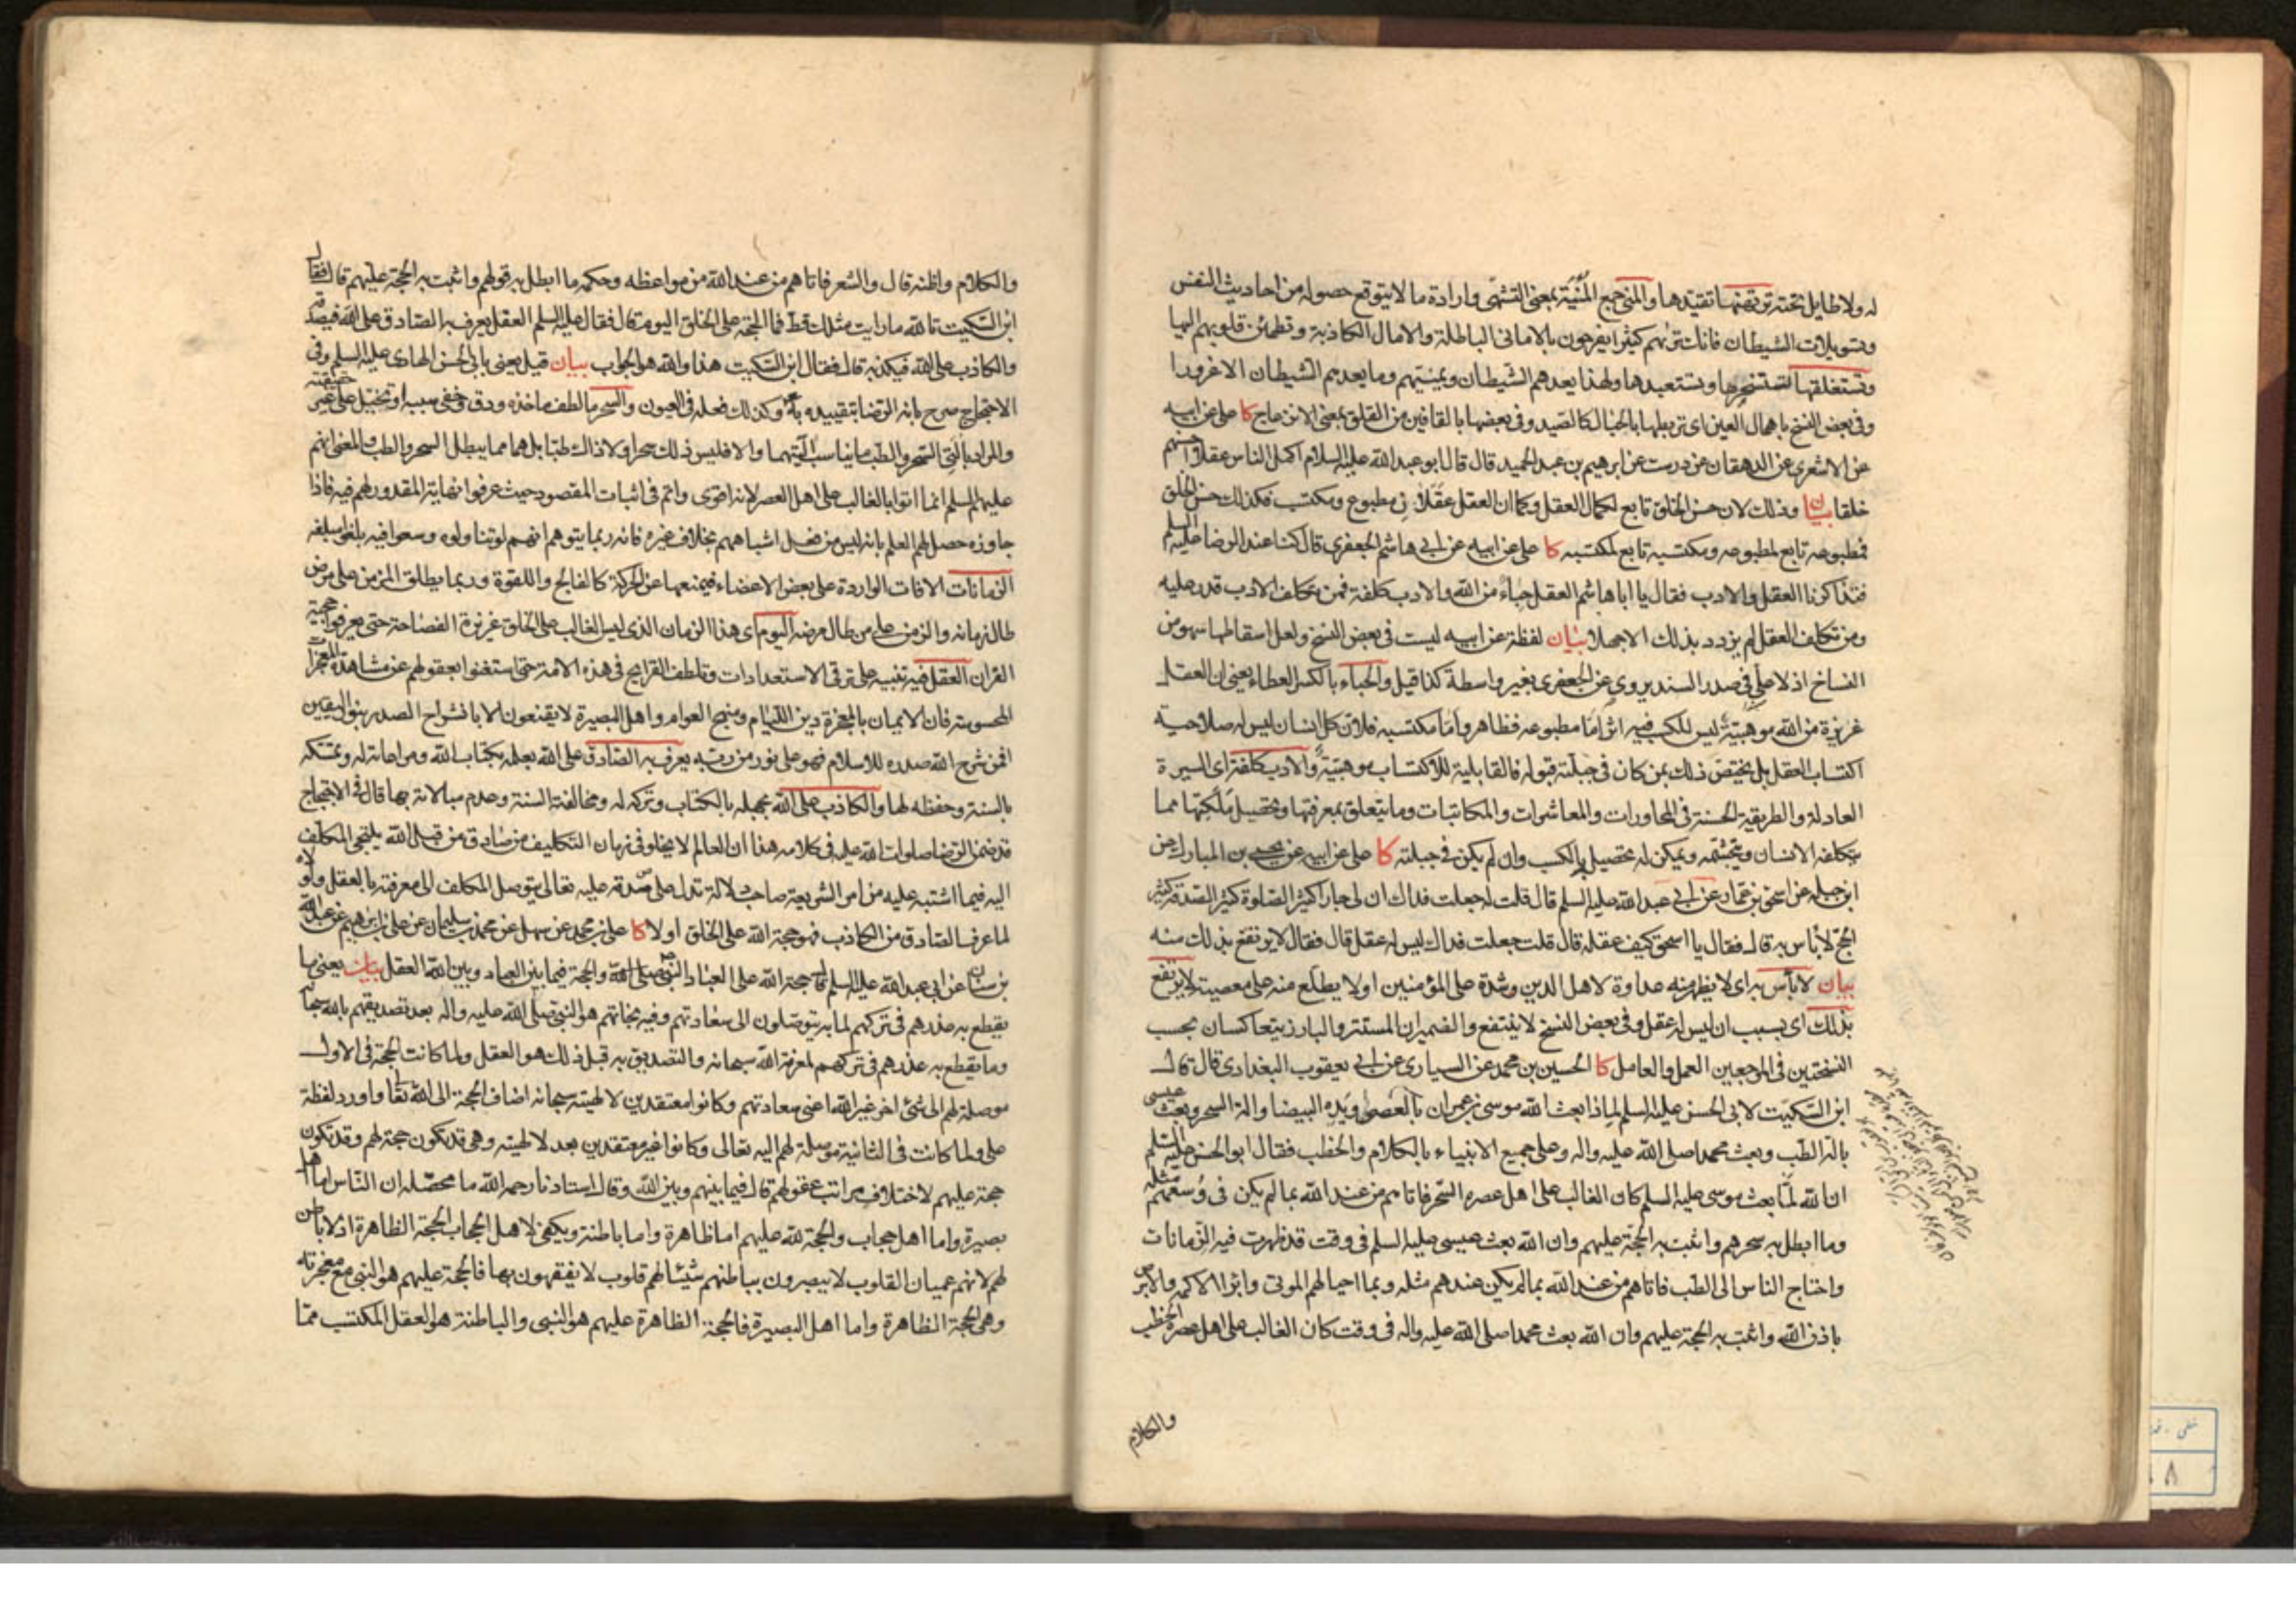 له ولا طايل تحته ترتهنها تقيدها والمنى جمع المنية بمعنى التشهى وارادة ما لا يتوقع حصوله من احاديث النفس
وتسويلات الشيطان فانك ترىهم كثيرا يفرحون بالامانى الباطلة والامال الكاذبة وتطمئن قلوبهم اليها
وتستغلقها تستسخرها وتستعبدها ولهذا يعدهم الشيطان ويمنيهم وما يعدهم الشيطان الا غرورا
وفى بعض النسخ باهمال العين اى تربطها بالحبال كالصيد وفى بعضها بالقافين من القلق بمعنى الانزعاج كا على عن ابيه
عن الاشعرى عن الدهقان عن درست عن ابرهيم بن عبد الحميد قال قال ابو عبد الله عليه السلام اكمل الناس عقلا احسنهم
خلقا بيان وذلك لان حسن الخلق تابع لكمال العقل وكما ان العقل عقلان مطبوع ومكتسب فكذلك حسن الخلق
فمطبوعه تابع لمطبوعه ومكتسبه تابع لمكتسبه كا على عن ابيه عن ابى هاشم الجعفرى قال كنا عند الرضا عليه السلم
فتذاكرنا العقل والادب فقال يا ابا هاشم العقل حباء من الله والادب كلفة فمن تكلف الادب قدر عليه
ومن تكلف العقل لم يزدد بذلك الا جهلا بيان لفظة عن ابيه ليست فى بعض النسخ ولعل اسقاطها سهو من
النساخ اذ لا على فى صدر السند يروى عن الجعفرى بغير واسطة كذا قيل والحباء بالكسر العطاء يعنى ان العقل
غريزة من الله موهبية ليس للكسب فيه اثر اما مطبوعه فظاهر واما مكتسبه فلان كل انسان ليس له صلاحية
اكتساب العقل بل يختص ذلك بمن كان فى جبلته قبوله فالقابلية للاكتساب موهبية والادب كلفة اى السيرة
العادلة والطريقة الحسنة فى المحاورات والمعاشرات والمكاتبات وما يتعلق بمعرفتها وتحصيل ملكتها مما
يتكلفه الانسان ويتجشمه ويمكن له تحصيله بالكسب وان لم يكن فى جبلته كا على عن ابيه عن يحيى بن المبارك عن
ابن جبلة عن اسحق بن عمار عن ابى عبد الله عليه السلم قال قلت له جعلت فداك ان لى جارا كثير الصلوة كثير الصدقة كثير
الحج لا باس به قال فقال يا اسحق كيف عقله قال قلت جعلت فداك ليس له عقل قال فقال لا يرتفع بذلك منه
بيان لا بأس به اى لا يظهر منه عداوة لاهل الدين وشدة على المؤمنين او لا يطلع منه على معصية لا يرتفع
بذلك اى بسبب ان ليس له عقل وفى بعض النسخ لا ينتفع والضميران المستتر والبارز يتعاكسان بحسب
النسختين فى المرجعين العمل والعامل كا الحسين بن محمد عن السيارى عن ابى يعقوب البغدادى قال قال
ابن السكيت لابى الحسن عليه السلم لماذا بعث الله موسى بن عمران بالعصى ويده البيضا والة السحر وبعث عيسى
بالة الطب وبعث محمدا صلى الله عليه واله وعلى جميع الانبياء بالكلام والخطب فقال ابو الحسن عليه السلم
ان الله لما بعث موسى عليه السلم كان الغالب على اهل عصره السحر فاتاهم من عند الله بما لم يكن فى وسعهم مثله
وما ابطل به سحرهم واثبت به الحجة عليهم وان الله بعث عيسى عليه السلم فى وقت قد ظهرت فيه الزمانات
واحتاج الناس الى الطب فاتاهم من عند الله بما لم يكن عندهم مثله وبما احيا لهم الموتى وابرا الاكمه والابرص
باذن الله واثبت به الحجة عليهم وان الله بعث محمدا صلى الله عليه واله فى وقت كان الغالب على اهل عصره الخطب
والكلام
والكلام واظنه قال والشعر فاتاهم من عند الله من مواعظه وحكمه ما ابطل به قولهم واثبت به الحجة عليهم قال فقال
ابن السكيت تالله ما رايت مثلك قط فما الحجة على الخلق اليوم قال فقال عليه السلم العقل يعرف به الصادق على الله فيصدقه
والكاذب على الله فيكذبه قال فقال ابن السكيت هذا والله هو الجواب بيان قيل يعنى بابى الحسن الهادى عليه السلم وفى
الاحتجاج صرح بانه الرضا بتقييده به وكذلك فعله فى العيون والسحر ما لطف ماخذه ودق وخفى سببه او تخيل على غير حقيقته
والمراد بالتى السحر والطب ما يناسب آيتيهما والا فليس ذلك سحرا ولا ذاك طبا بل هما مما يبطل السحر والطب والمعنى انهم
عليهم السلم انما اتوا بالغالب على اهل العصر لانه اقوى واتم فى اثبات المقصود حيث عرفوا نهاية المقدور لهم فيه فاذا
جاوزه حصل لهم العلم بانه ليس من فعل اشباههم بخلاف غيره فانه ربما يتوهم انهم لو تناولوه وسعوا فيه بلغوا مبلغه
الزمانات الافات الواردة على بعض الاعضاء فيمنعها عن الحركة كالفالج واللقوة وربما يطلق المزمن على مرض
طال زمانه والزمن على من طال مرضه اليوم اى هذا الزمان الذى ليس الغالب على الخلق غريزة الفصاحة حتى يعرفوا حجية
القران العقل فيه تنبيه على ترقى الاستعدادات وتلطف القرايح فى هذه الامة حتى استغنوا بعقولهم عن مشاهدة المعجزات
المحسوسة فان الايمان بالمعجزة دين اللئام ومنهج العوام واهل البصيرة لا يقنعون الا بانشراح الصدر بنور اليقين
افمن شرح الله صدره للاسلام فهو على نور من ربه يعرف به الصادق على الله بعلمه بكتاب الله ومراعاته له وتمسكه
بالسنة وحفظه لها والكاذب على الله بجهله بالكتاب وتركه له ومخالفة السنة وعدم مبالاته بها قال فى الاحتجاج
قد ضمن الرضا صلوات الله عليه فى كلامه هذا ان العالم لا يخلو فى زمان التكليف من صادق من قبل الله يلتجى المكلف
اليه فيما اشتبه عليه من امر الشريعة صاحب دلالة تدل على صدقه عليه تعالى يتوصل المكلف الى معرفته بالعقل ولولاه
لما عرف الصادق من الكاذب فهو حجة الله على الخلق اولا كا على بن محمد عن سهل عن محمد بن سليمان عن على بن ابرهيم عن عبد الله
بن سنان عن ابى عبد الله عليه السلم قال حجة الله على العباد النبى صلى الله والحجة فيما بين العباد وبين الله العقل بيان يعنى ما
يقطع به عذرهم فى تركهم لما به يتوصلون الى سعادتهم وفيه نجاتهم هو النبى صلى الله عليه واله بعد تصديقهم بالله سبحانه
وما يقطع به عذرهم فى تركهم لمعرفة الله سبحانه والتصديق به قبل ذلك هو العقل ولما كانت الحجة فى الاول
موصلة لهم الى شئ اخر غير الله اعنى سعادتهم وكانوا معتقدين لالهيته سبحانه اضاف الحجة الى الله تعالى واورد لفظة
على ولما كانت فى الثانية موصلة لهم اليه تعالى وكانوا غير معتقدين بعد لالهيته وهى قد تكون حجة لهم وقد تكون
حجة عليهم لاختلاف مراتب عقولهم قال فيما بينهم وبين الله وقال استادنا رحمه الله ما محصله ان الناس اما اهل
بصيرة واما اهل حجاب والحجة لله عليهم اما ظاهرة واما باطنة ويكفى لاهل الحجاب الحجة الظاهرة اذ لا باطن
لهم لانهم عميان القلوب لا يبصرون بباطنهم شيئا لهم قلوب لا يفقهون بها فالحجة عليهم هو النبى مع معجزته
وهى الحجة الظاهرة واما اهل البصيرة فالحجة الظاهرة عليهم هو النبى والباطنة هو العقل المكتسب مما